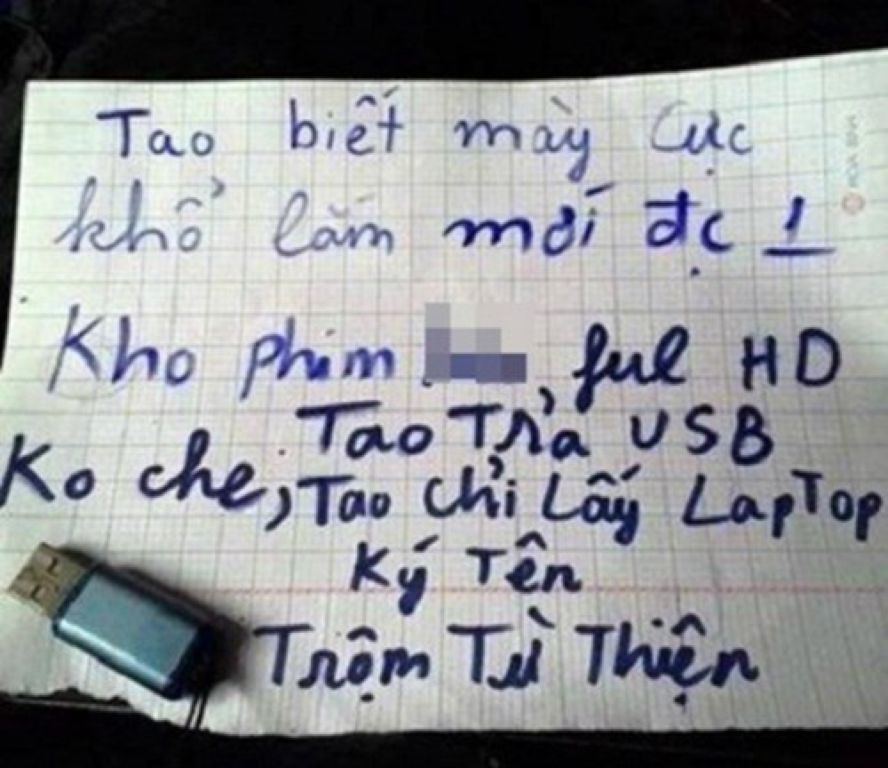 Tao biết mày cực
khổ lắm mới đc 1
Kho phim ful HD
Ko che, Tao Trả USB
Tao chỉ Lấy LapTop
Ký Tên
Trộm Từ Thiện